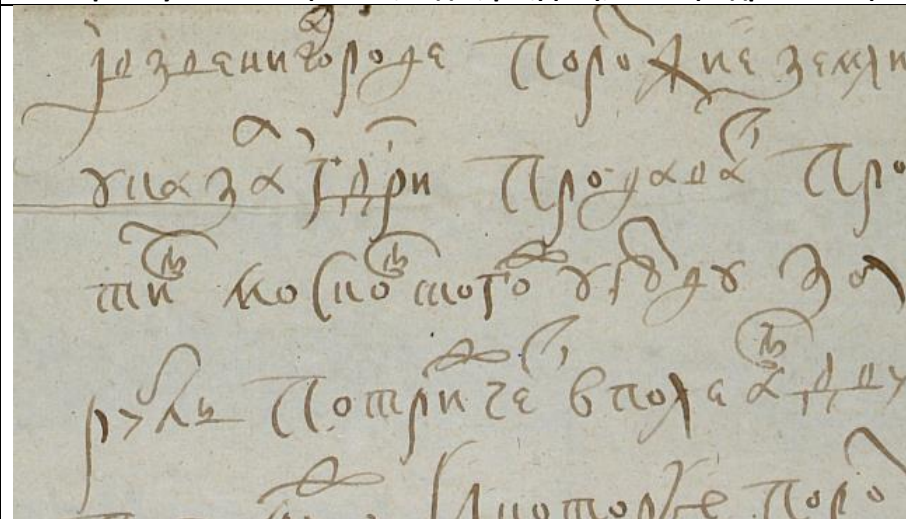 і в Звенигороде порозжие земли
указа гдри продават про
тив московского уезду за
рубль по три чети в поле а в дву
которые поро